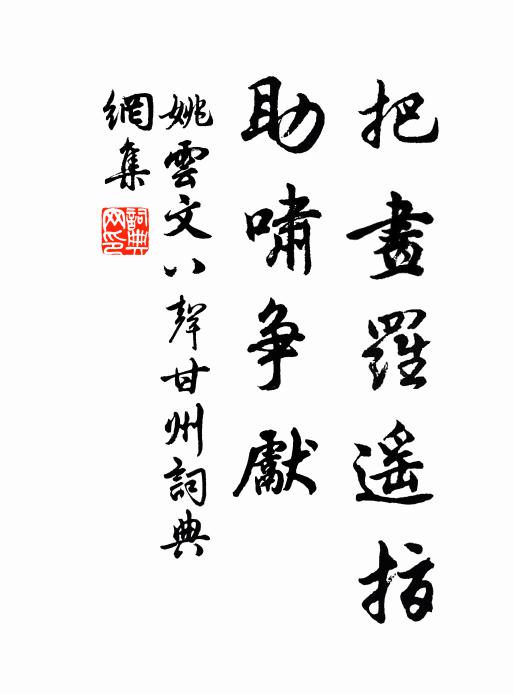 把畫羅遥指
助嘯争獻
姚雲文八聲甘州詞典
網集
詞典網印